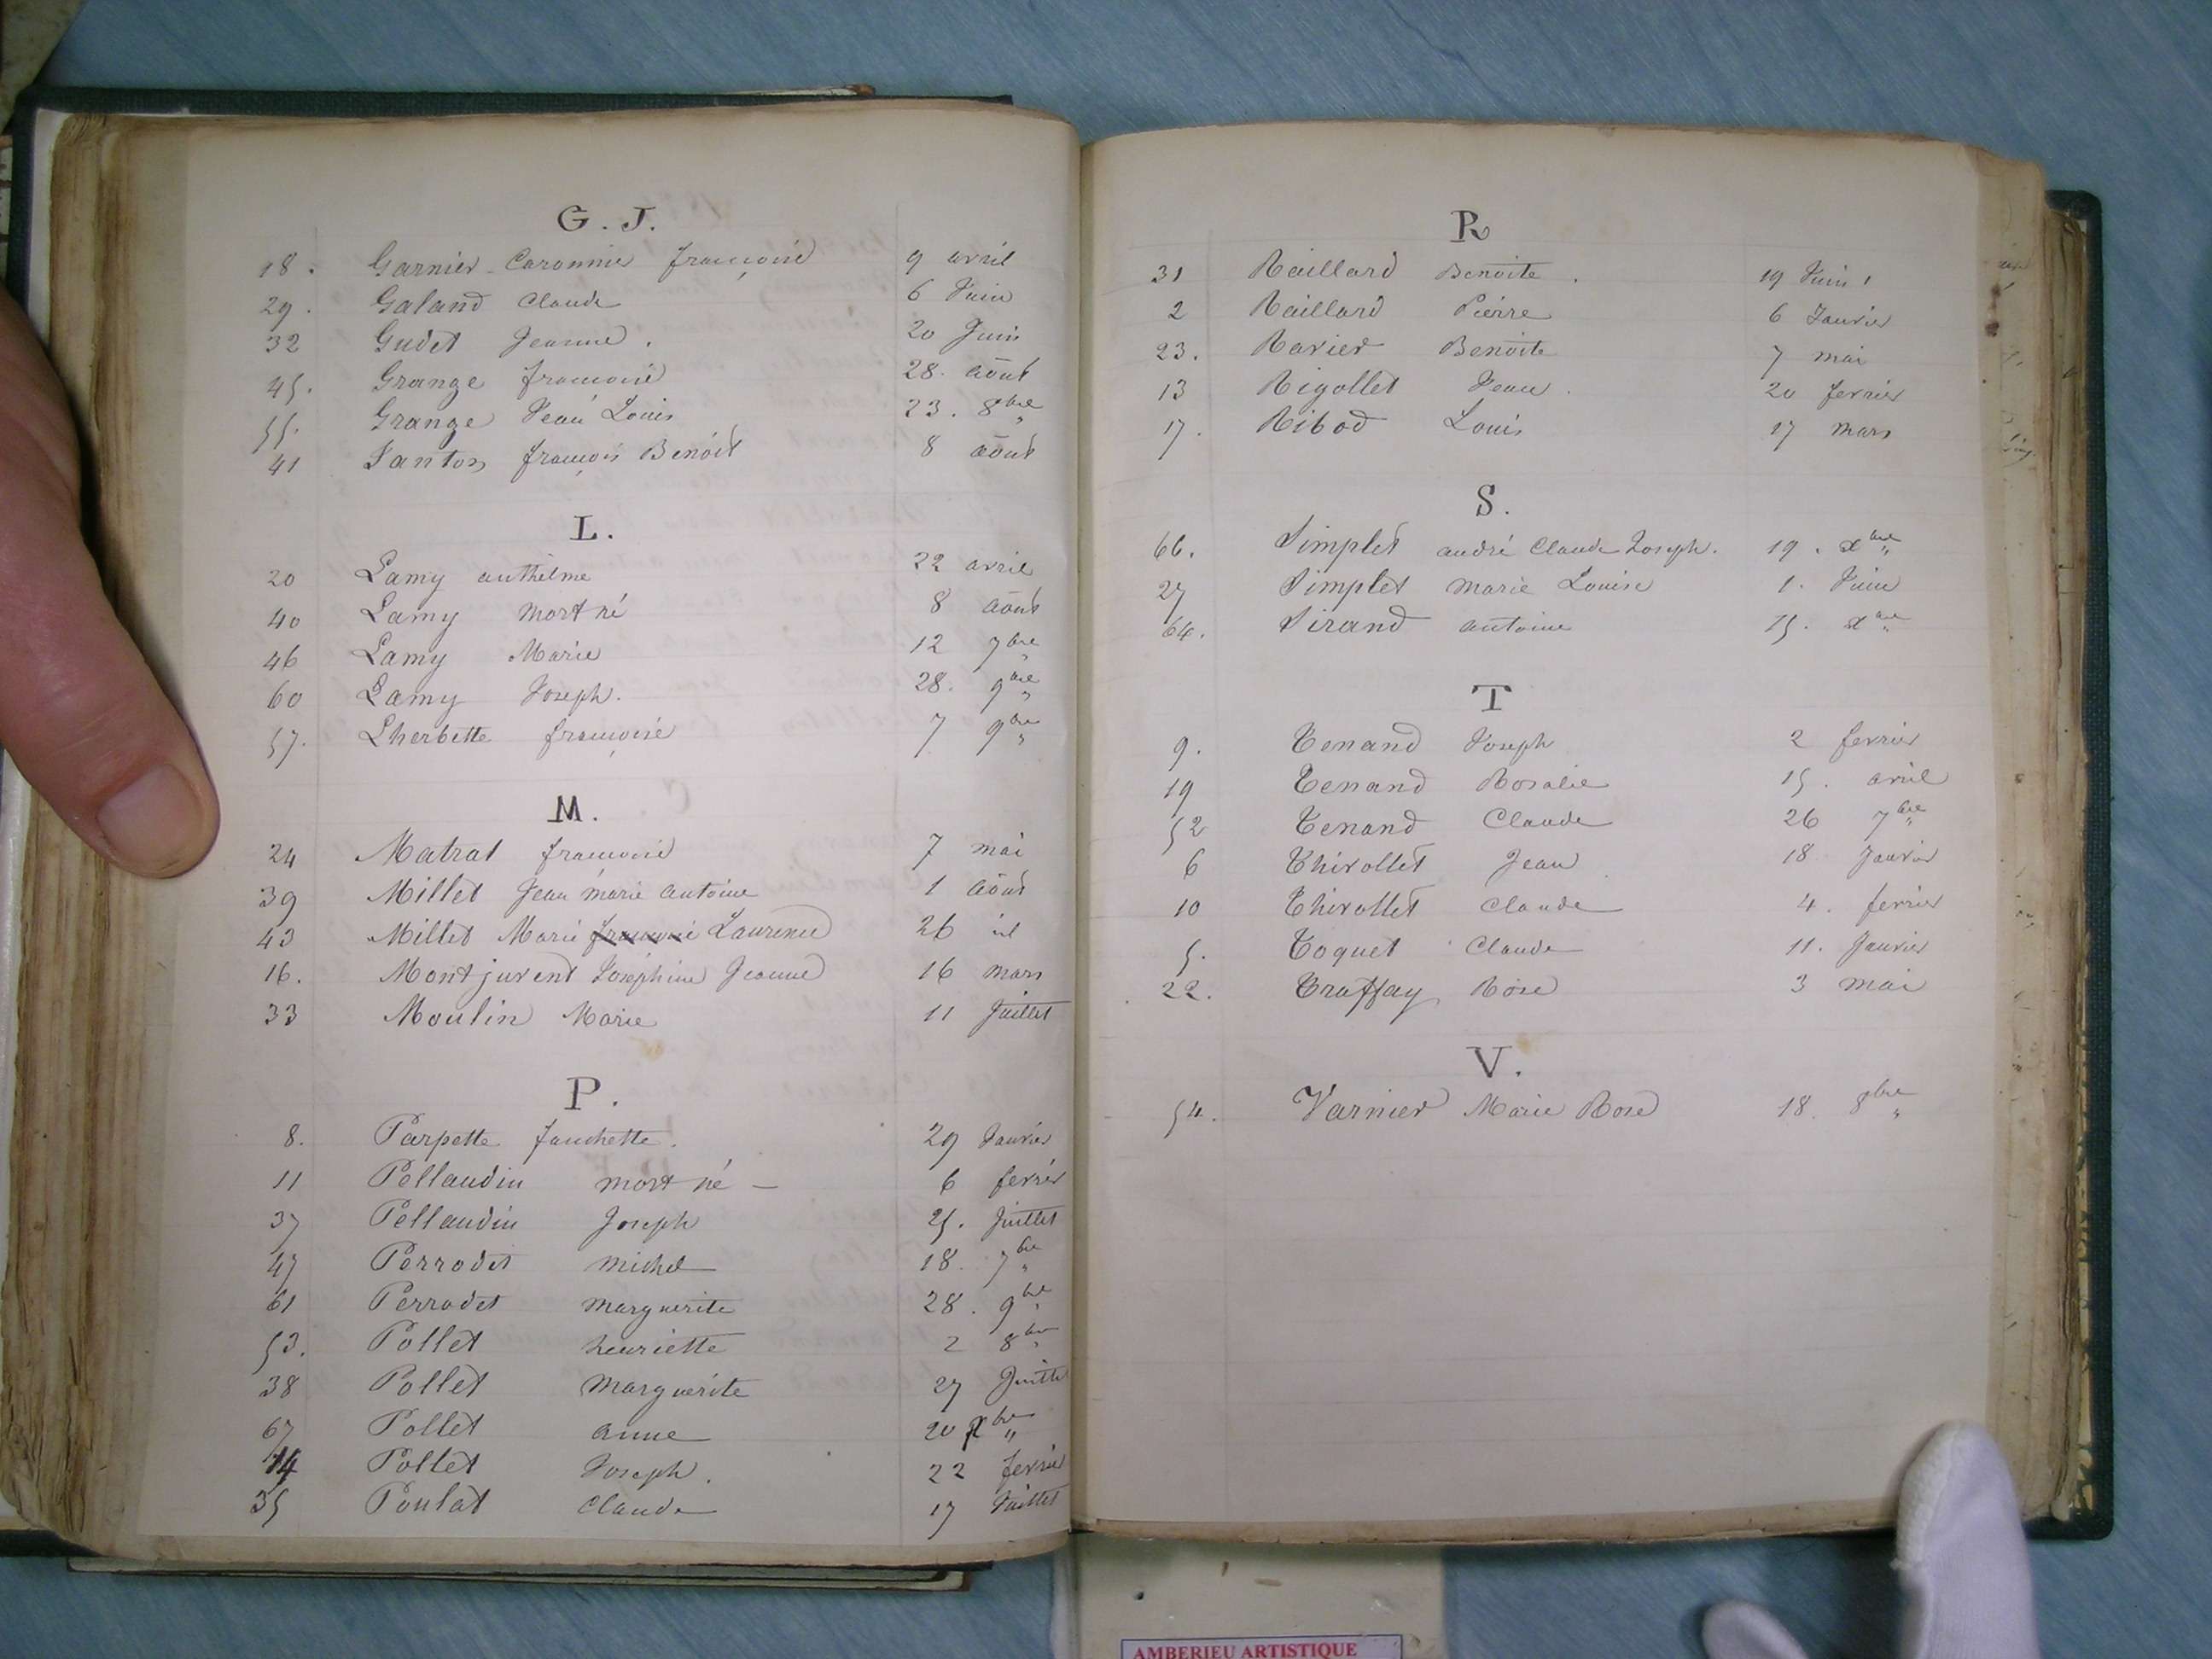 G. J.
18. Garnier-Caronnier françoise 9 avril
29. Galand Claude 6 Juin
32 Gudet Jeanne. 20 Juin
45. Grange françoise 28. août
55. Grange Jean Louis 23. 8bre
41 Janton françois Benoît 8 août
L.
20 Lamy anthelme 22 avril
40 Lamy mort né 8 août
46 Lamy Marie 12 7bre
60 Lamy Joseph. 28. 9bre
57. Lherbette françoise 7 9bre
M.
24 Matrat françoise 7 mai
39 Millet Jean marie antoine 1 août
43 Millet Marie françoise Laurence 26 id
16. Montjuvent Joséphine Jeanne 16 mars
33 Moulin Marie 11 Juillet
P.
8. Parpette fanchette. 29 Janvier
11 Pellaudin mort né - 6 fevrier
37 Pellaudin Joseph 25. Juillet
47 Perrodet michel 18. 7bre
61 Perrodet marguerite 28. 9bre
53. Pollet henriette 2 8bre
38 Pollet marguerite 27 Juillet
67 Pollet anne 20 xbre
14 Pollet Joseph. 22 fevrier
35 Poulat Claude 17 Juillet
R
31 Raillard Benoite. 19 Juin
2 Raillard Pierre 6 Janvier
23. Ravier Benoite 7 mai
13 Rigollet Jean. 20 fevrier
17. Ribod Louis 17 mars
S.
66. Simplet andré Claude Joseph. 19. xbre
27 Simplet marie Louise 1. Juin
64. Sirand antoine 15. xbre
T
9. Tenand Joseph 2 fevrier
19 Tenand Rosalie 15. avril
52 Tenand Claude 26 7bre
6 Thirollet Jean 18 Janvier
10 Thirollet Claude 4. fevrier
5. Toquet Claude 11. Janvier
22. Traffay Rose 3 mai
V.
54. Varnier Marie Rose 18. 8bre
AMBERIEU ARTISTIQUE